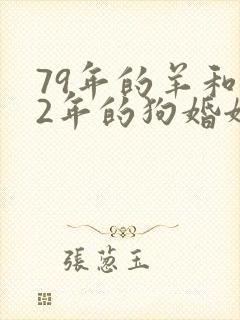 79年的羊和
2年的狗婚姻
張蔥玉